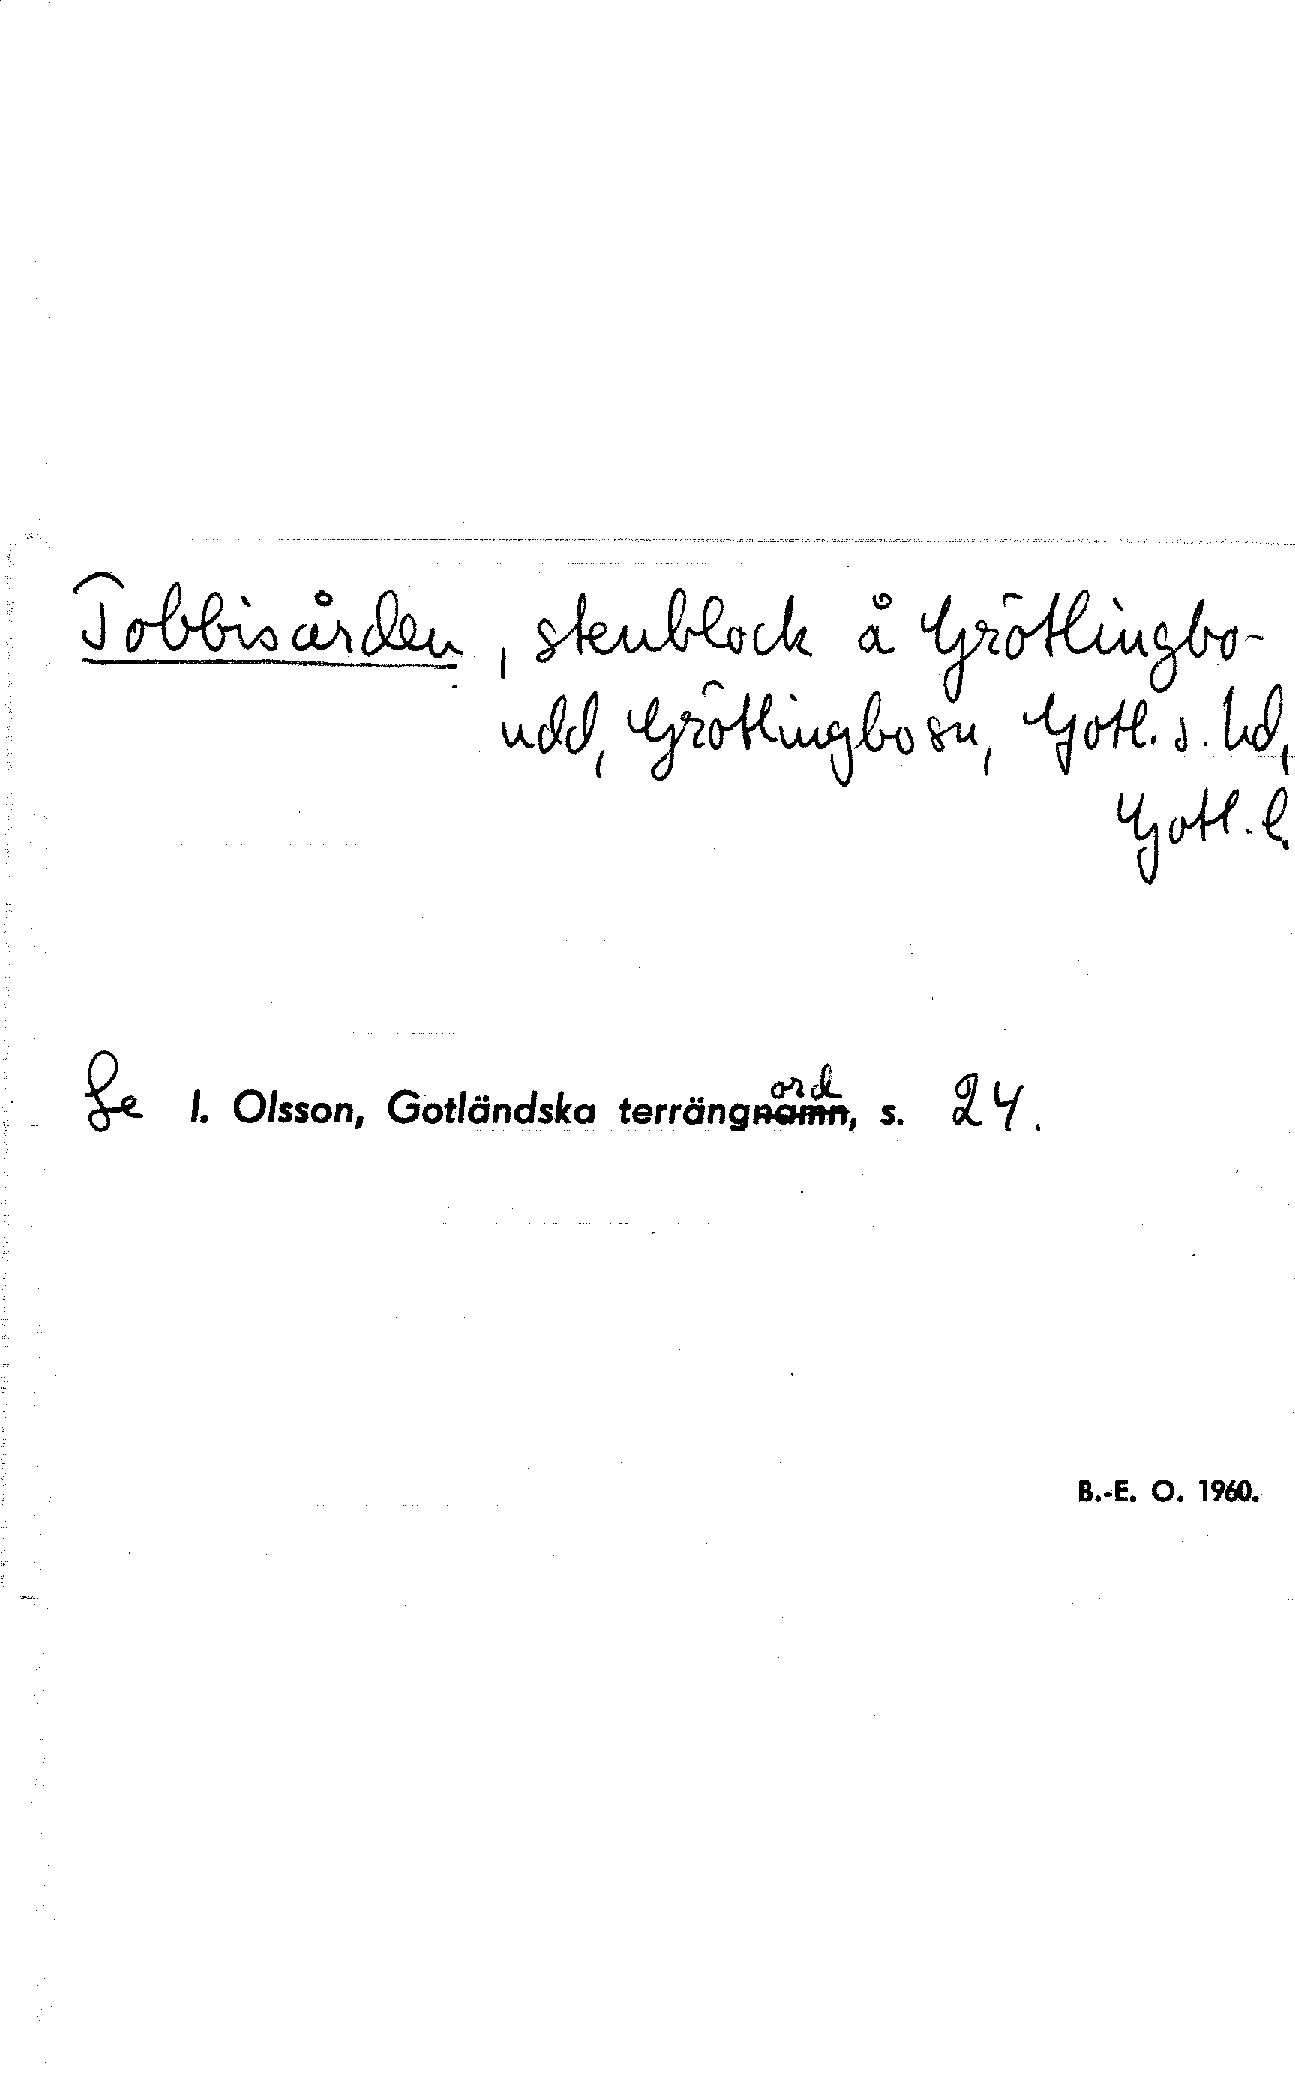 Tobbisården, stenblock å Grötlingbo-
udd, Grötlingbo sn, Gotl. s. hd,
Gotl. l.
Se I. Olsson, Gotländska terrängnamn ord, s. 24.
B.-E. O. 1960.